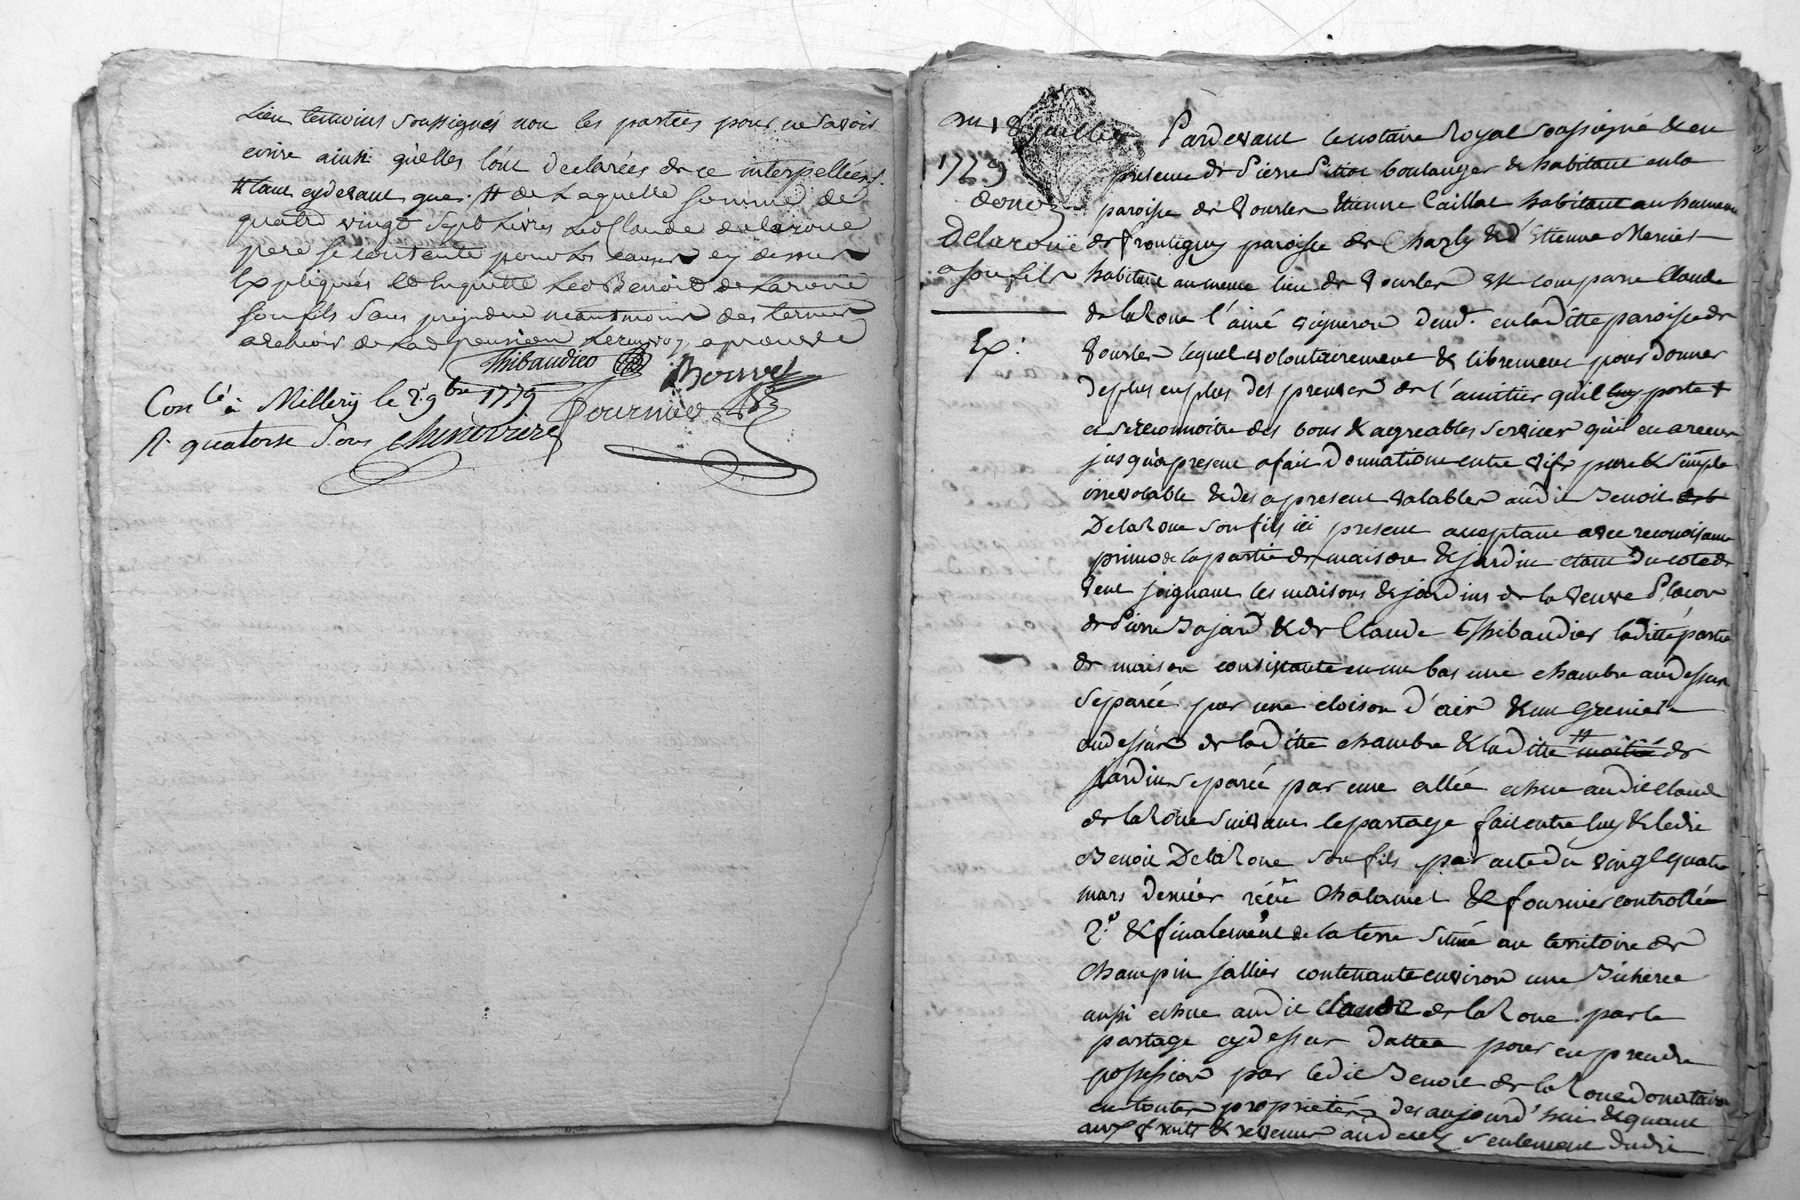 Lieu temoins soussignés non les parties pour ne savoir
ecrire ainsi qu'elles l'ont declarées de ce interpellées.
tant cydevant que # de Laquelle somme de
quatre vingt sept Livres Led Claude delaroüe
pere se contente pour les causes cy dessus
Expliquées et en quitte Led Benoit de Laroüe
son fils sans prejudice neantmoins des termes
a echoir de Lad pension approuvé
Thibaudier Bonnet
Con.lé à Millery le 2. 9bre 1779 fournier
R. quatorse sous chinuvriere
Du 18 Juillet
1779
donon
Delaroüe
a son fils
Ex:
Pardevant le notaire Royal soussigné & en
presence de Pierre boulanger & habitant en la
paroisse de Vourles Etienne Caillat habitant au hameau
de frontigny paroisse de Charly & d'Etienne Mercier
habitant au meme lieu de Vourles Est comparu Claude
de la Roue l'ainé vigneron demt. en laditte paroisse de
Vourles lequel volontairement & librement pour donner
de plus en plus des preuves de l'amitier qu'il luy porte &
et se reconnoitre des bons & agreables services qu'il en a receu
jusqu'apresent a fait donnation entre vifs pure & simple
irrevocable & des apresent valable audit Benoit
De la Roue son fils ici present acceptant avec reconoissance
primo de la partie de maison & jardin etant du coté de
Vent joignant les maisons & jardins de la veuve Placon
de Pierre Bajard & de Claude Thibaudier laditte partie
de maison consistante en un bas une chambre au dessus
separée par une cloison d'air & un grenier
au dessus de laditte chambre & laditte # moitié de
jardin separée par une allée echue audit Claude
de la Roue suivant le partage fait entre luy & ledit
Benoit De la Roue son fils par acte du vingt quatre
mars dernier reçu Chalamel & fournier controllée
2.° & finalement de la terre située au territoire de
champin jallier contenante environ une Bicherée
aussi echue audit Claude de la Roue par le
partage cydessus datté pour en prendre
possession par ledit Benoit de la Roue donataire
en toutes proprietés des aujourd'hui & quant
aux fruits & revenus seulement dudit